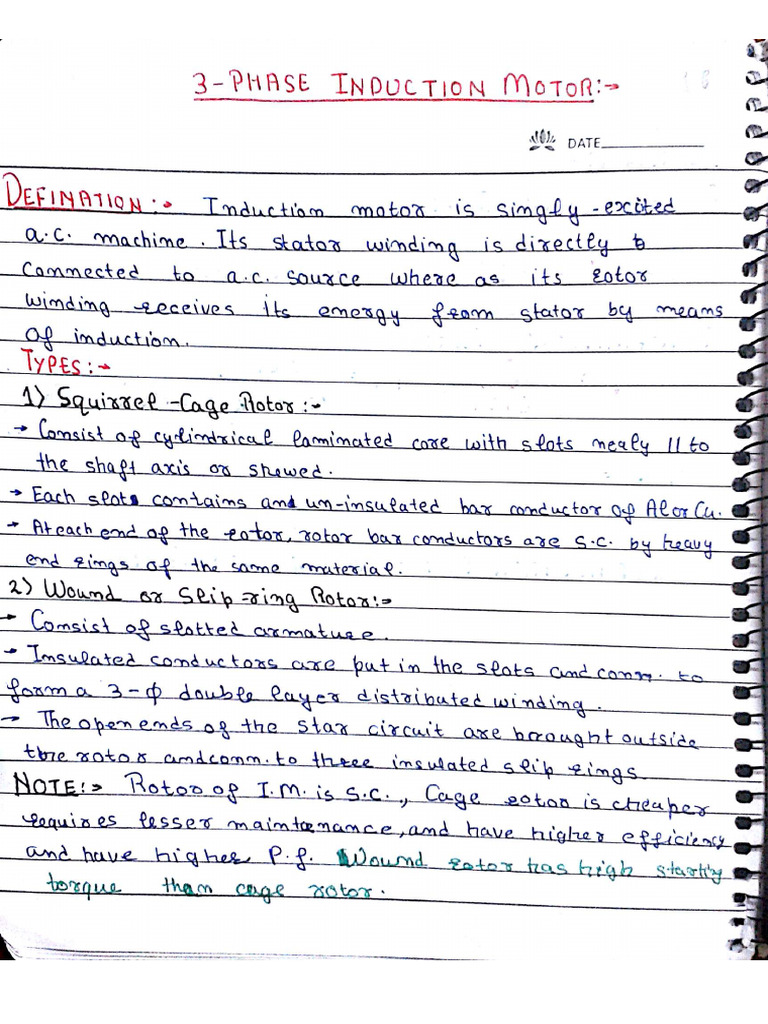 3-PHASE INDUCTION MOTOR:-
DATE
DEFINATION:- Induction motor is singly-excited
a.c. machine. Its stator winding is directly
connected to a.c. source where as its rotor
winding receives its energy from stator by means
of induction.
TYPES:-
1) Squirrel-Cage Rotor:-
→ Consist of cylindrical laminated core with slots nealy 11 to
the shaft axis or skewed.
→ Each slots contains and un-insulated bar conductor of Al or Cu.
→ At each end of the rotor, rotor bar conductors are s.c. by heavy
end rings of the same material.
2) Wound or Slip-ring Rotor:-
→ Consist of slotted armature.
→ Insulated conductors are put in the slots and conn. to
form a 3-ϕ double layer distributed winding.
→ The open ends of the star circuit are brought outside
the rotor and conn. to three insulated slip rings.
NOTE:- Rotor of I.M. is s.c., Cage rotor is cheaper
requires lesser maintanance, and have higher efficiency
and have higher P.f. Wound rotor has high starting
torque than cage rotor.